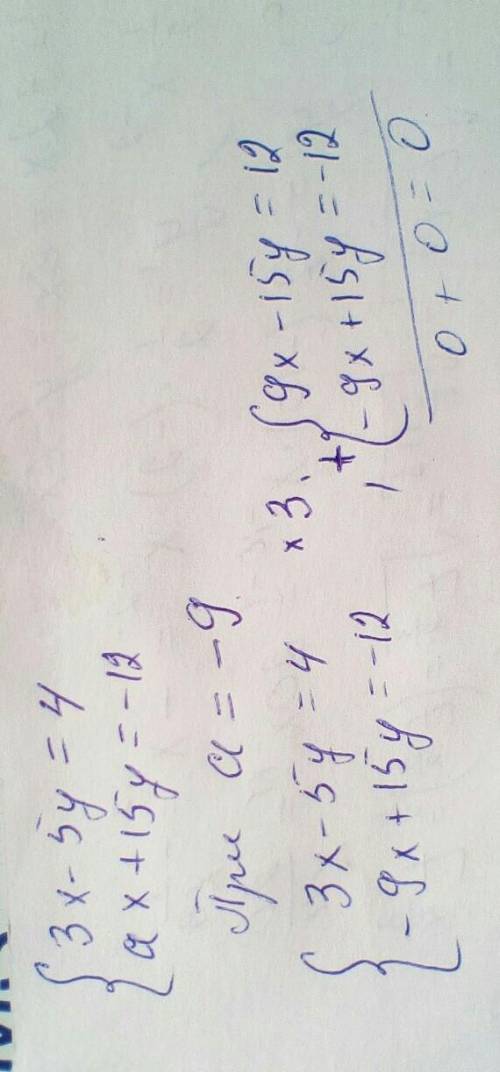 { 3x - 5y = 4
ax + 15y = -12
При a = -9
{ 3x - 5y = 4 × 3
-9x + 15y = -12
+ { 9x - 15y = 12
-9x + 15y = -12
0 + 0 = 0